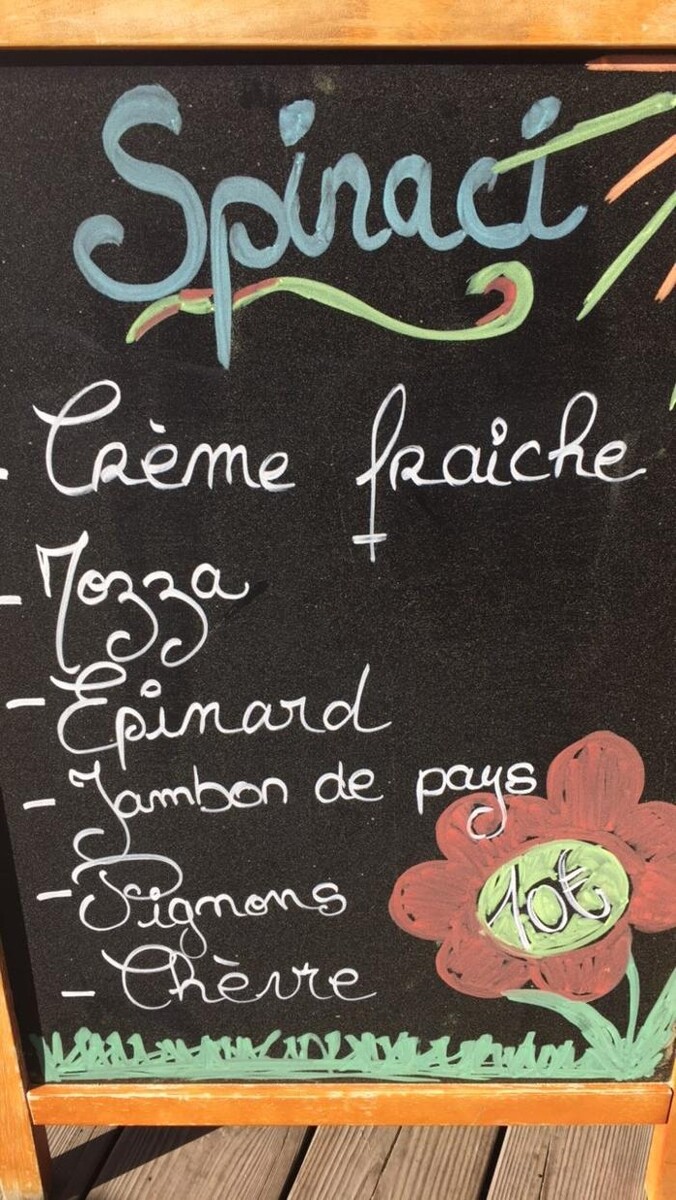 Spinaci
- Crème fraiche
- Mozza
- Epinard
- Jambon de pays
- Pignons
10€
- Chèvre